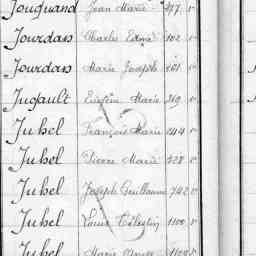 Jouquand Jean Marie 177 v
Jourdas Charles Edmé 102 v
Jourdas Marie Joseph 401 v
Jugault Eugène Marie 369 v
Juhel François Marie 244 v
Juhel Pierre Marie 528 v
Juhel Joseph Guillaume 742 v
Juhel Louis Célestin 1100 v
Juhel Marie